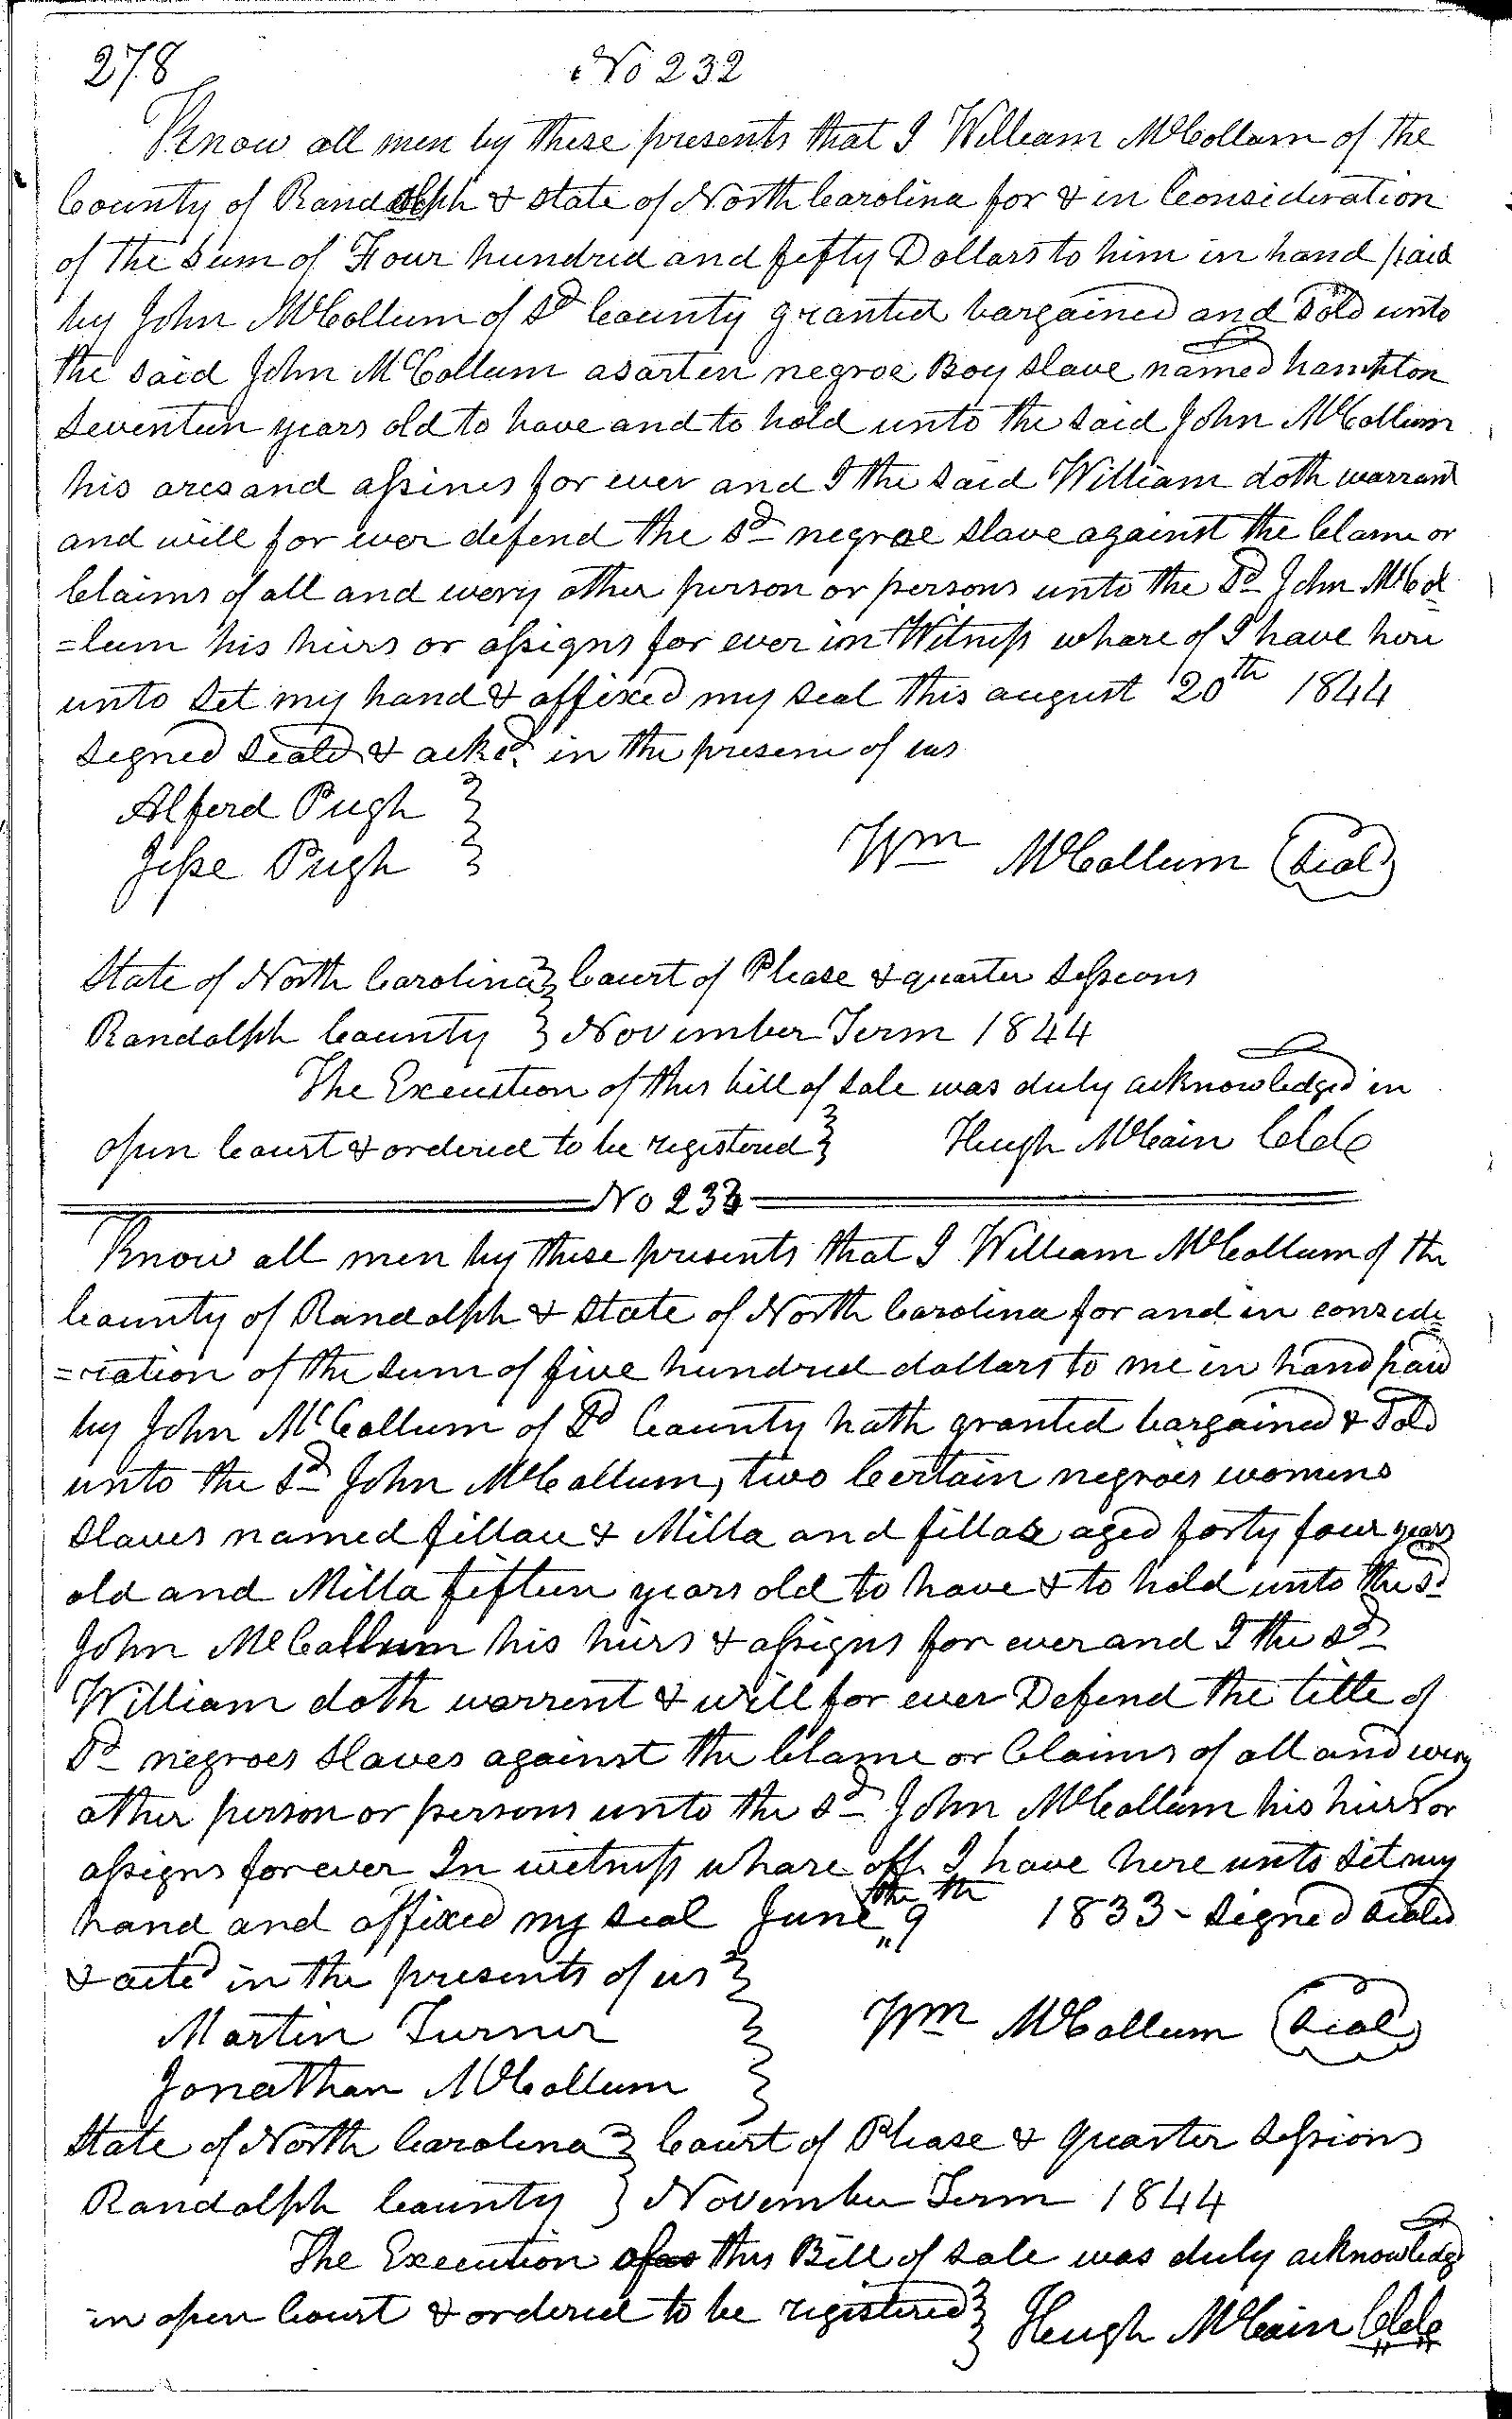 278 No 232
Know all men by these presents that I William McCollam of the
County of Randolph & state of North Carolina for & in Consideration
of the Sum of Four hundred and fifty Dollars to him in hand paid
by John McCollum of Sd County granted bargained and Sold unto
the said John McCollum asarten negroe Boy slave named hampton
Seventeen years old to have and to hold unto the said John McCollum
his ares and assines for ever and I the said William doth warrant
and will for ever defend the sd negroe slave against the Clame or
Claims of all and every other person or persons unto the Sd John McCol
=lum his heirs or assigns for ever in Witness whare of I have here
unto Set my hand & affixed my seal this august 20th 1844
Signed Seald & ackd. in the presene of us
Alferd Pugh
Jesse Pugh
Wm McCollum (Seal)
State of North Carolina } Court of Please & quarter Sessions
Randolph County } November Term 1844
The Execution of this bill of sale was duly acknowledged in
open Court & ordered to be registered } Hugh McCain Clde
No 233
Know all men by these presents that I William McCollum of the
County of Randolph & State of North Carolina for and in conside
=ration of the sum of five hundred dollars to me in hand paid
by John McCollum of Sd County hath granted bargained & Sold
unto the sd John McCollum, two Certain negroes womens
slaves named fillau & Milla and fillas aged forty four years
old and Milla fifteen years old to have & to hold unto the sd
John McCollum his heirs & assigns for ever and I the sd
William doth warrent & will for ever Defend the title of
Sd negroes Slaves against the Clame or Claims of all and every
other person or persons unto the sd John McCollum his heirs or
assigns forever In witness whare off I have here unto Set my
hand and affixed my seal June the 9th 1833 - Signed Sealed
& acted in the presents of us
Wm McCollum (Seal)
Martin Turner
Jonathan McCollum
State of North Carolina } Court of Please & quarter Sessions
Randolph County } November Term 1844
The Execution of this Bill of sale was duly acknowledgd
in open Court & ordered to be registered } Hugh McCain Clde